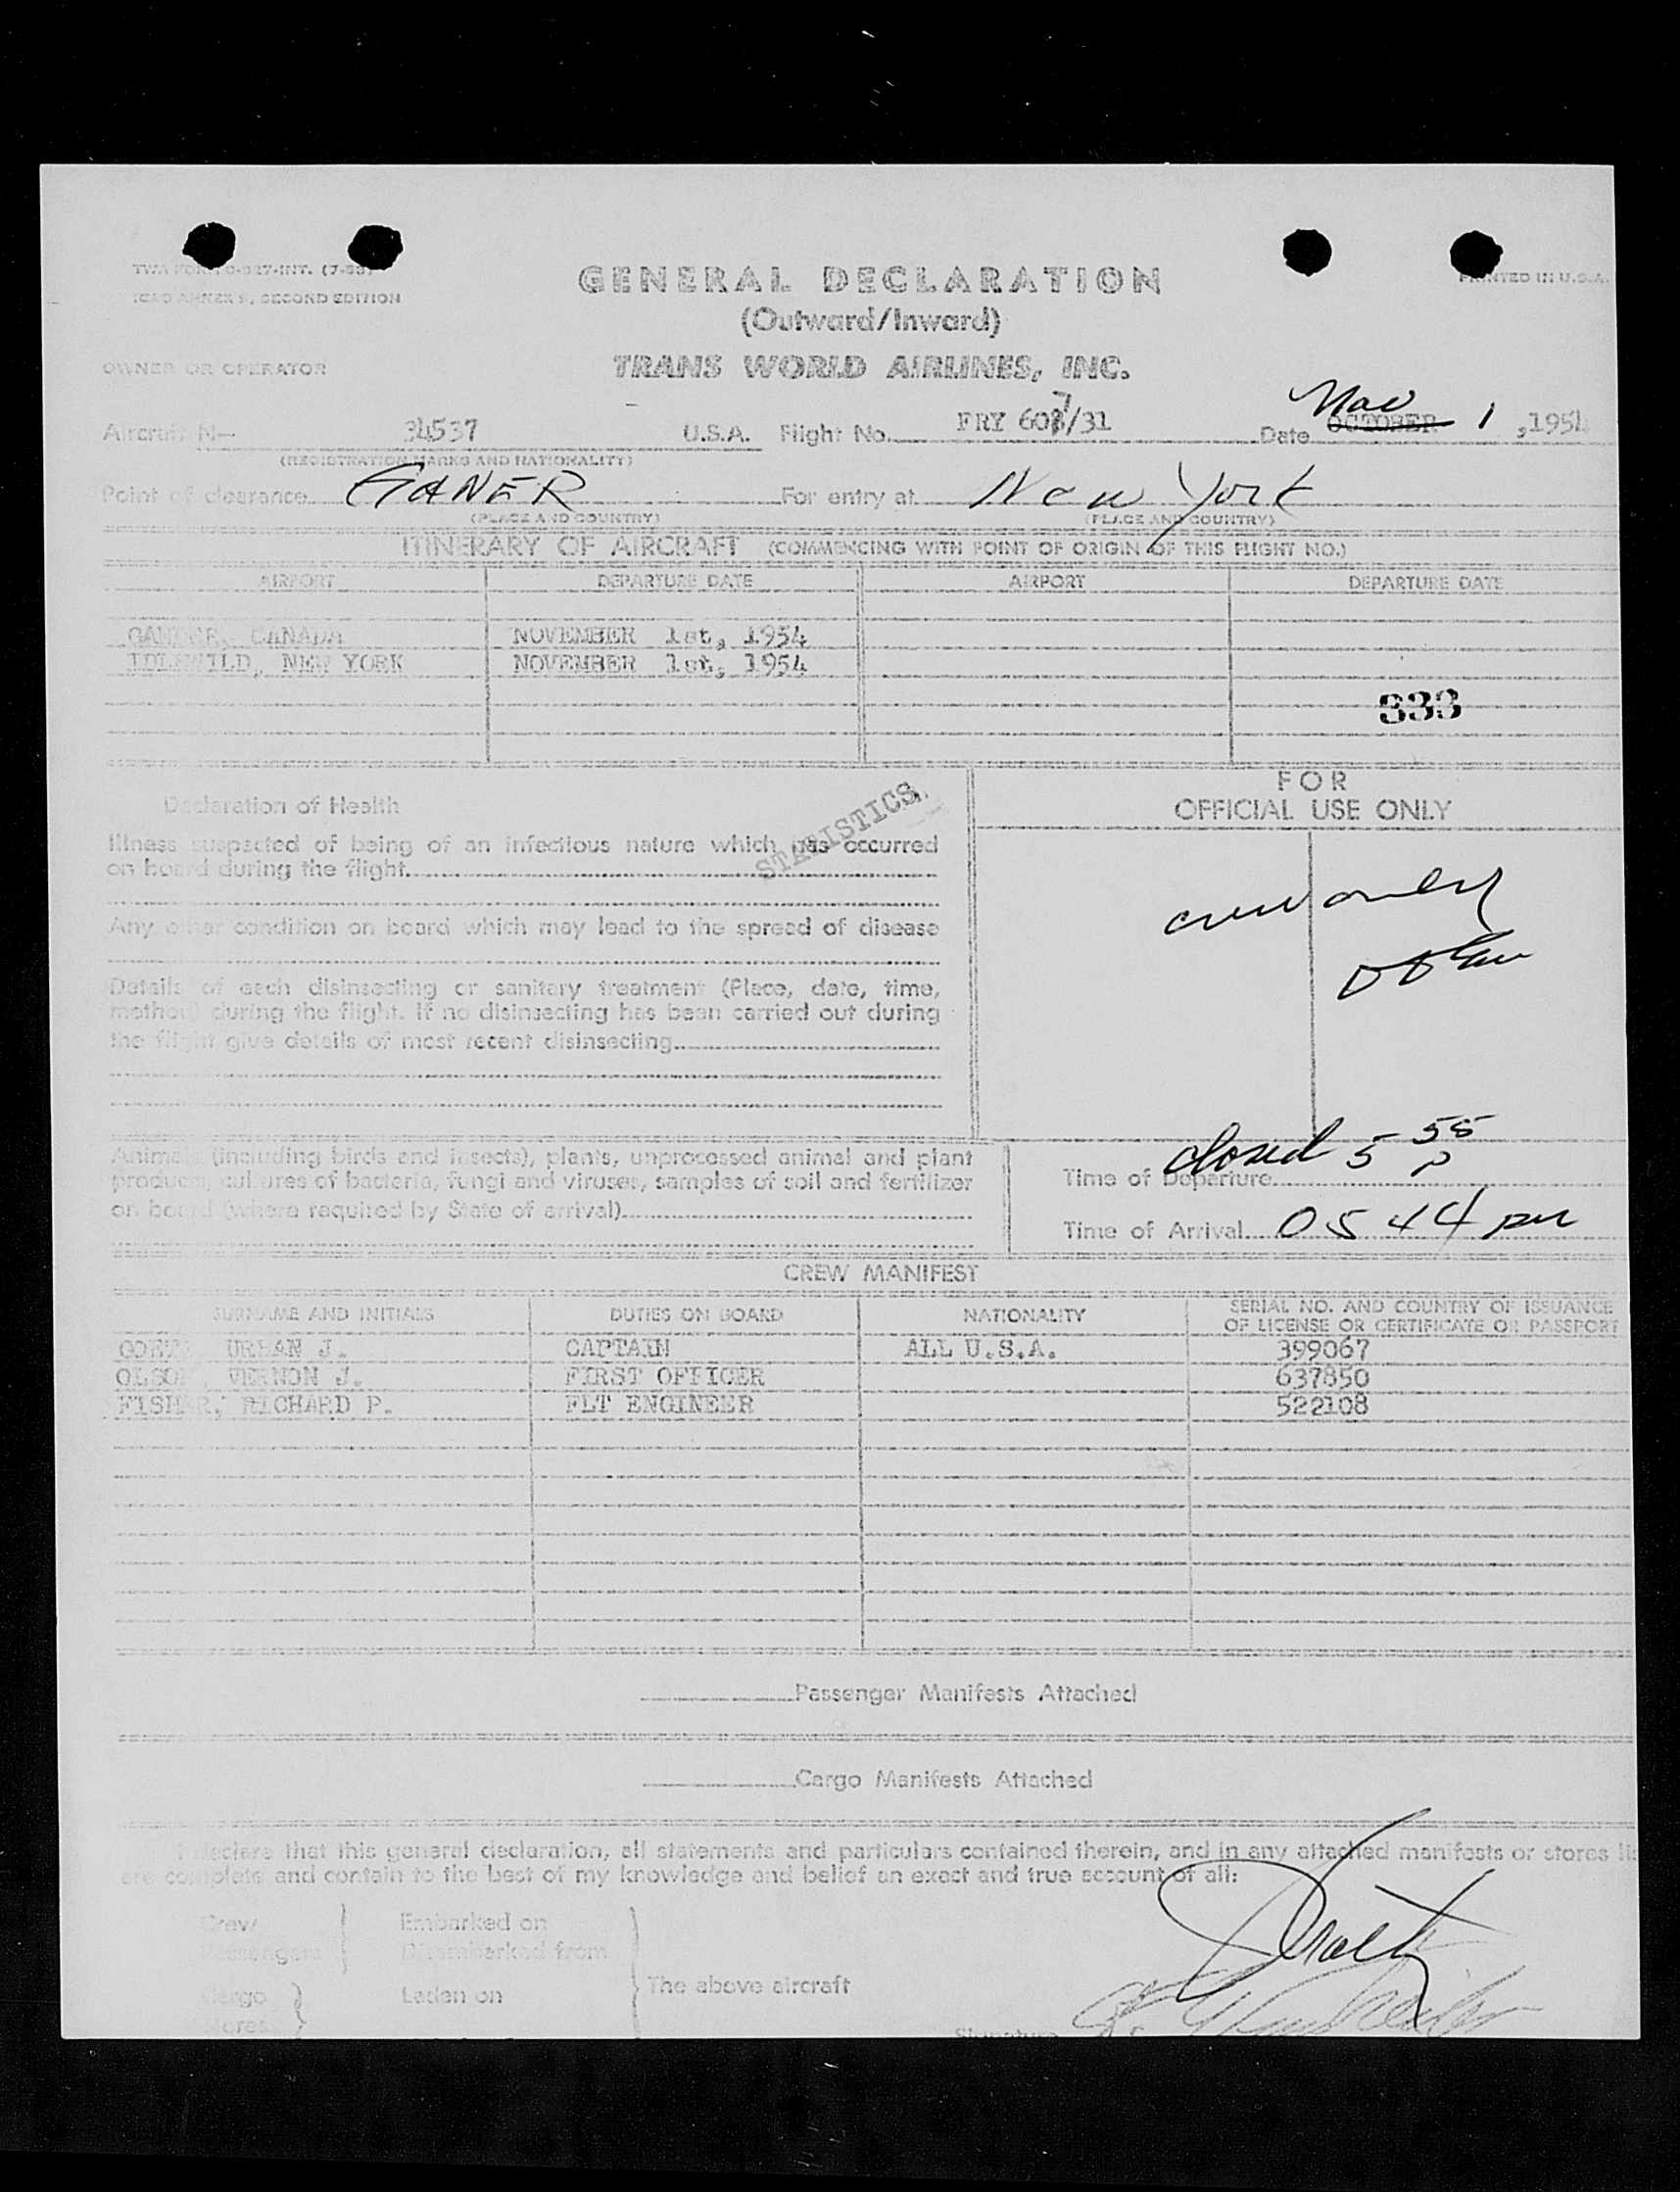 TWA FORM O-327-INT. (7-53)
ICAO ANNEX 9, SECOND EDITION
PRINTED IN U.S.A.
GENERAL DECLARATION
(Outward/Inward)
OWNER OR OPERATOR TRANS WORLD AIRLINES, INC.
Aircraft N— 34537 U.S.A. Flight No. FRY 607/31 Date OCTOBER Nov 1, 1954
(REGISTRATION MARKS AND NATIONALITY)
Point of clearance GANER For entry at New York
(PLACE AND COUNTRY) (PLACE AND COUNTRY)
ITINERARY OF AIRCRAFT (COMMENCING WITH POINT OF ORIGIN OF THIS FLIGHT NO.)
AIRPORT DEPARTURE DATE AIRPORT DEPARTURE DATE
GANDER, CANADA NOVEMBER 1st, 1954
IDLEWILD, NEW YORK NOVEMBER 1st, 1954
333
FOR
OFFICIAL USE ONLY
Declaration of Health
STATISTICS
Illness suspected of being of an infectious nature which has occurred
on board during the flight
Any other condition on board which may lead to the spread of disease
Details of each disinsecting or sanitary treatment (Place, date, time,
method) during the flight. If no disinsecting has been carried out during
the flight give details of most recent disinsecting
crew only
Animals (including birds and insects), plants, unprocessed animal and plant
products, cultures of bacteria, fungi and viruses, samples of soil and fertilizer
on board (where required by State of arrival)
closed 5 55 P
Time of Departure
Time of Arrival 0544 pm
CREW MANIFEST
SURNAME AND INITIALS DUTIES ON BOARD NATIONALITY SERIAL NO. AND COUNTRY OF ISSUANCE
OF LICENSE OR CERTIFICATE OR PASSPORT
URBAN J. CAPTAIN ALL U.S.A. 399067
OLSON, VERNON J. FIRST OFFICER 637850
FISHER, RICHARD P. FLT ENGINEER 522108
Passenger Manifests Attached
Cargo Manifests Attached
I declare that this general declaration, all statements and particulars contained therein, and in any attached manifests or stores li
are complete and contain to the best of my knowledge and belief an exact and true account of all:
Crew Embarked on
Passengers Disembarked from
The above aircraft
Cargo Laden on
Stores
Signature